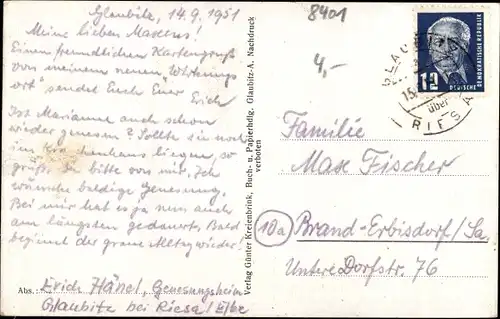 Glaubitz, 14.9.1951
Meine lieben Maxens!
Einen freundlichen Kartengruß
von meinem neuen "Wirkungs
ort" sendet Euch Euer
Erich
Ist Marianne auch schon
wieder genesen? Sollte sie noch
im Krankenhaus liegen, so
grüßt sie bitte von mir. Ich
wünsche baldige Genesung.
Bei mir hat es ja nun auch
am längsten gedauert. Bald
beginnt der graue Alltag wieder!
Abs.: Erich Hänel, Genesungsheim
Glaubitz bei Riesa/Elbe
Verlag Günter Kreienbrink, Buch- u. Papierhdlg. Glaubitz-A. Nachdruck
verboten
8401
4,-
DEUTSCHE DEMOKRATISCHE REPUBLIK
12
DEUTSCHE
über
RIESA
Familie
Max Fischer
10a Brand-Erbisdorf/Sa.
Untere Dorfstr. 76